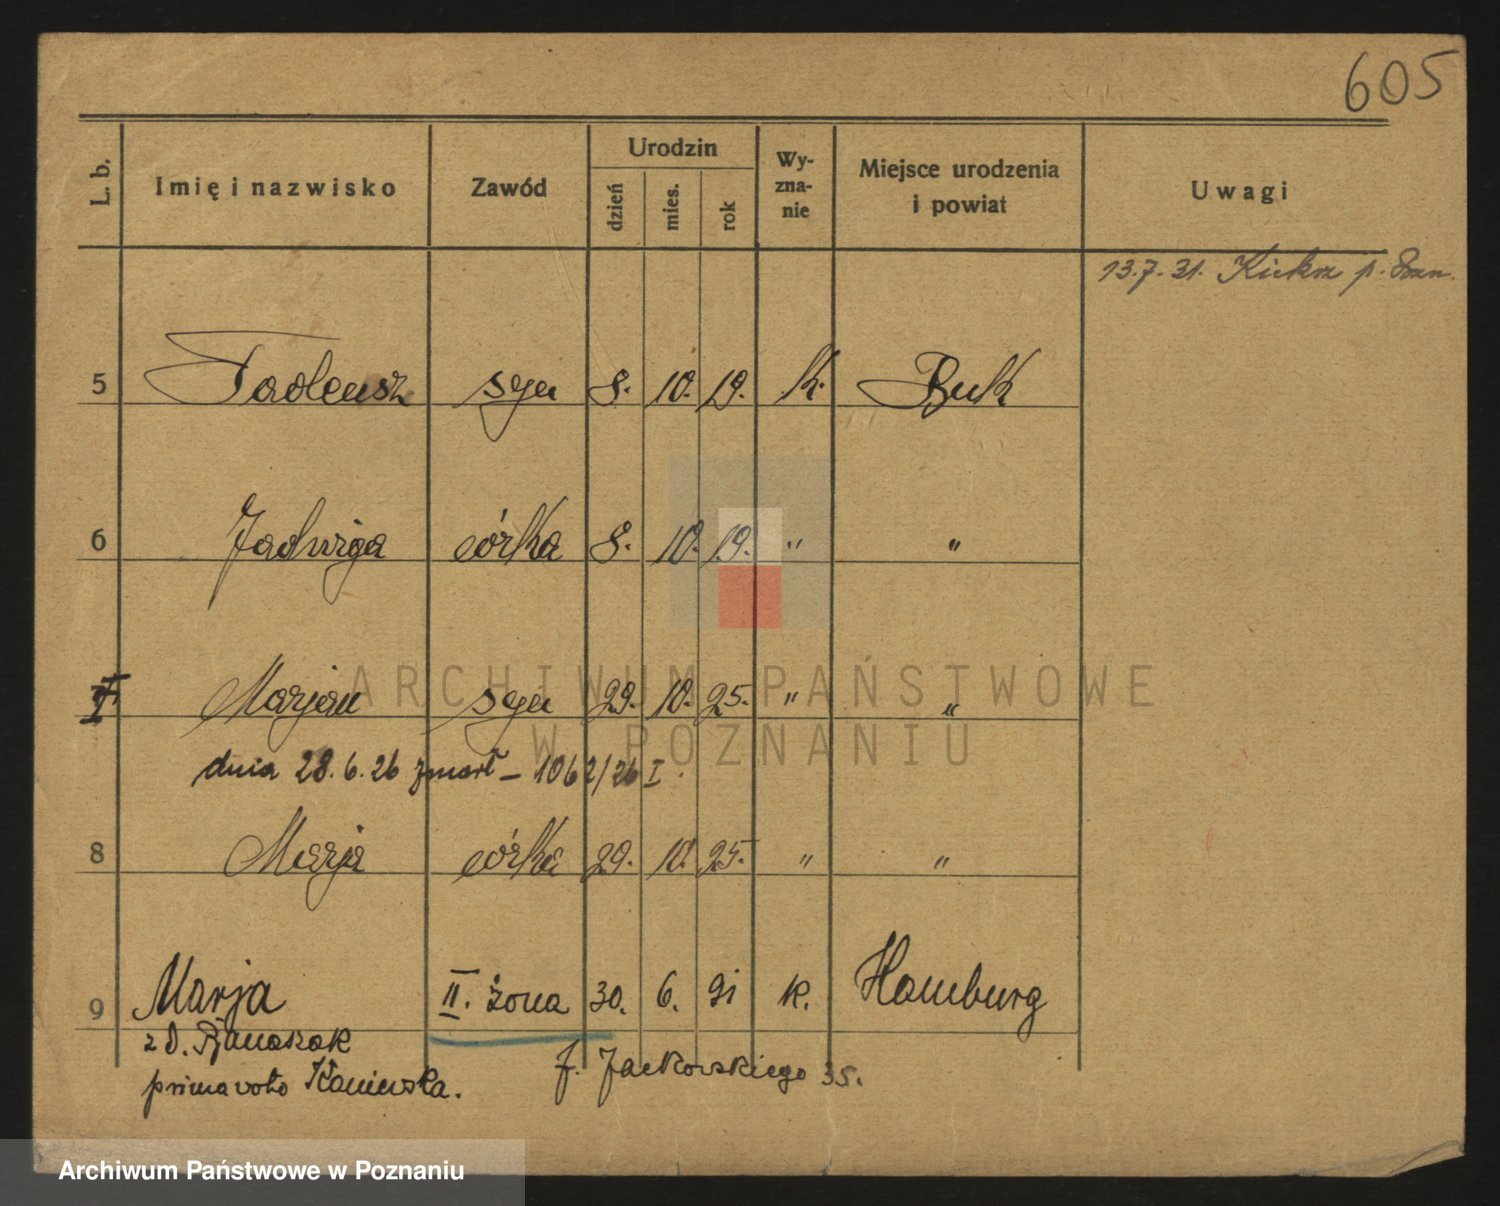 605
L. b. Imię i nazwisko Zawód Urodzin dzień mies. rok Wy-zna-nie Miejsce urodzenia i powiat Uwagi
13.7.31. Kiekrz p. Pozn.
5 Tadeusz syn 8. 10. 19. k. Buk
6 Jadwiga córka 8. 10. 19. " "
7. Marjan syn 29. 10. 25. " "
dnia 28.6.26 zmarł – 1062/26 I.
8 Marja córka 29. 10. 25. " "
9 Marja II. żona 30. 6. 91 k. Hamburg
z d. Banaszak
prima voto Kaniewska.
J. Jackowskiego 35.
ARCHIWUM PAŃSTWOWE
W POZNANIU
Archiwum Państwowe w Poznaniu